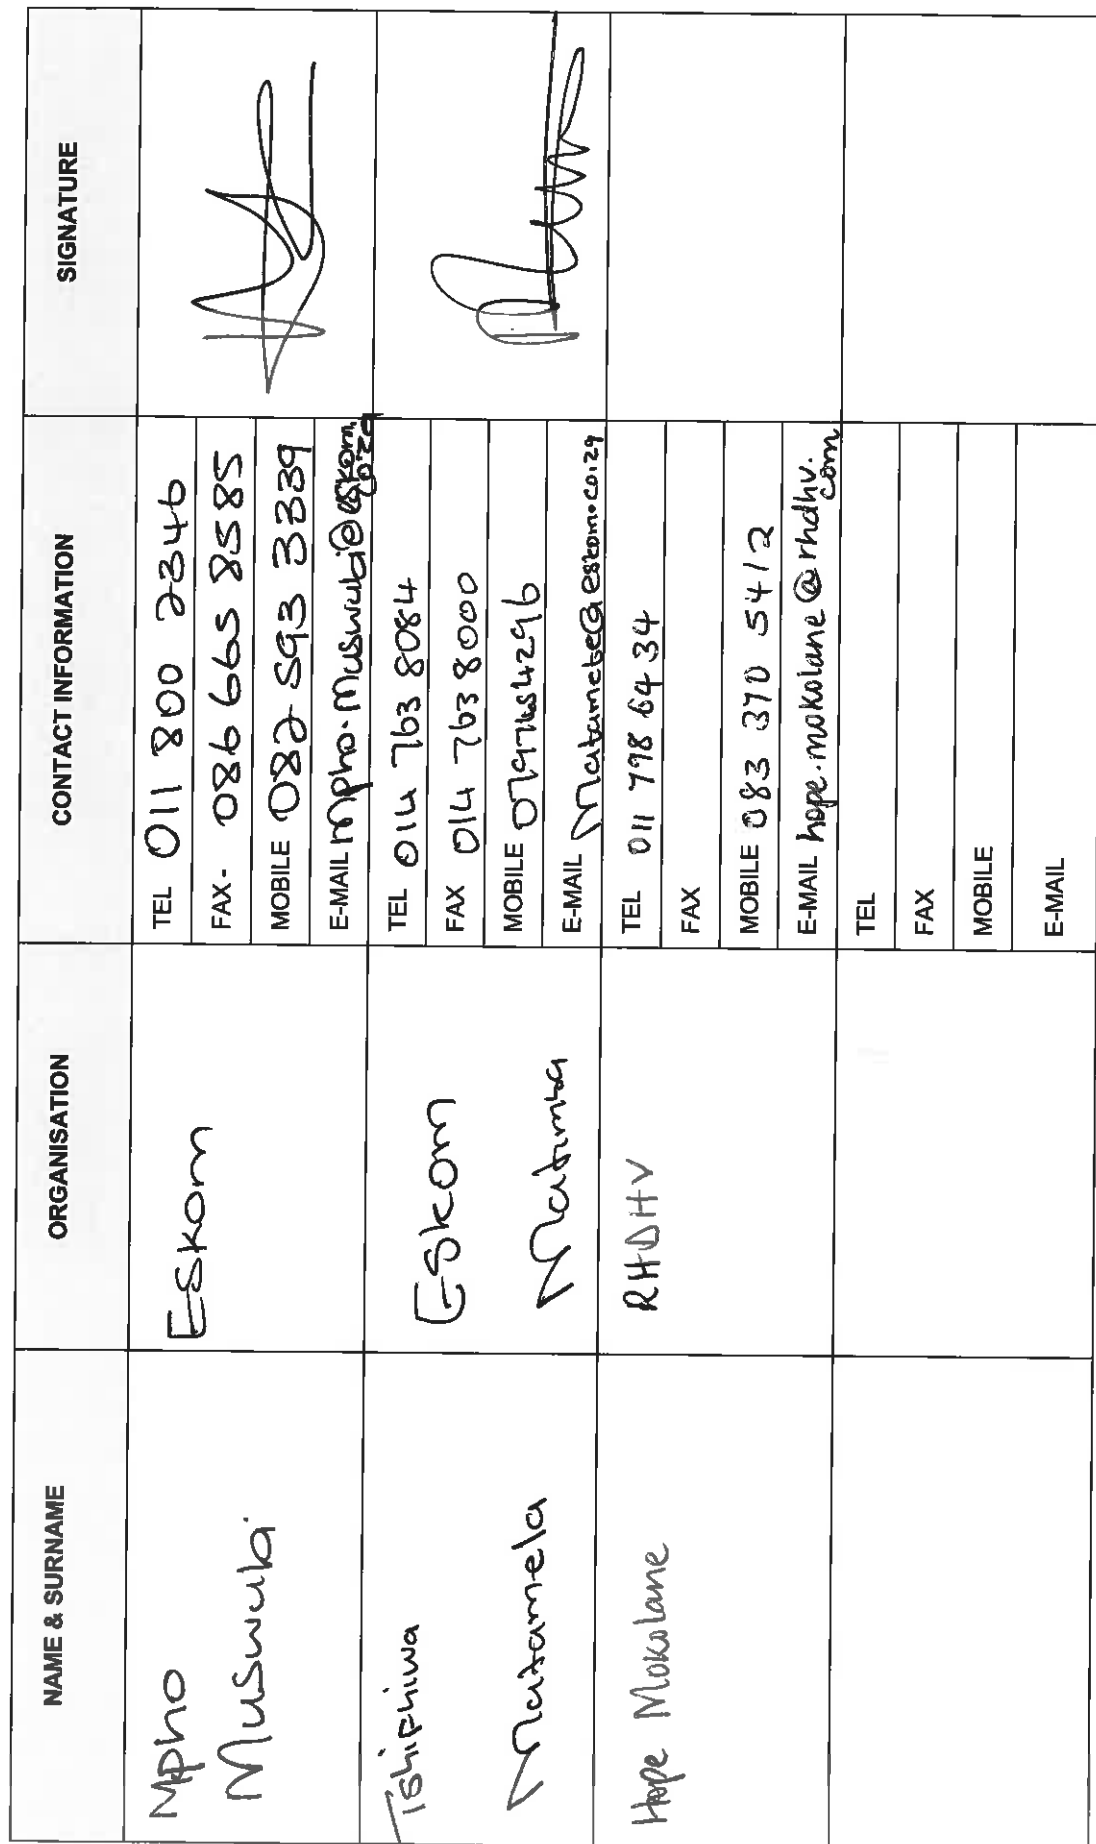 NAME & SURNAME
ORGANISATION
CONTACT INFORMATION
SIGNATURE
Mpho
Muswubi
Eskom
TEL 011 800 2346
FAX- 086 665 8585
MOBILE 082 593 3339
E-MAIL mpho.muswubi@eskom.
co.za
Tshiphiwa
Matamela
Eskom
Matimba
TEL 014 763 8084
FAX 014 763 8000
MOBILE
E-MAIL
Hope Mokolane
RHDHV
TEL 011 798 64 34
FAX
MOBILE 083 370 5412
E-MAIL hope.mokolane@rhdhv.
com
TEL
FAX
MOBILE
E-MAIL